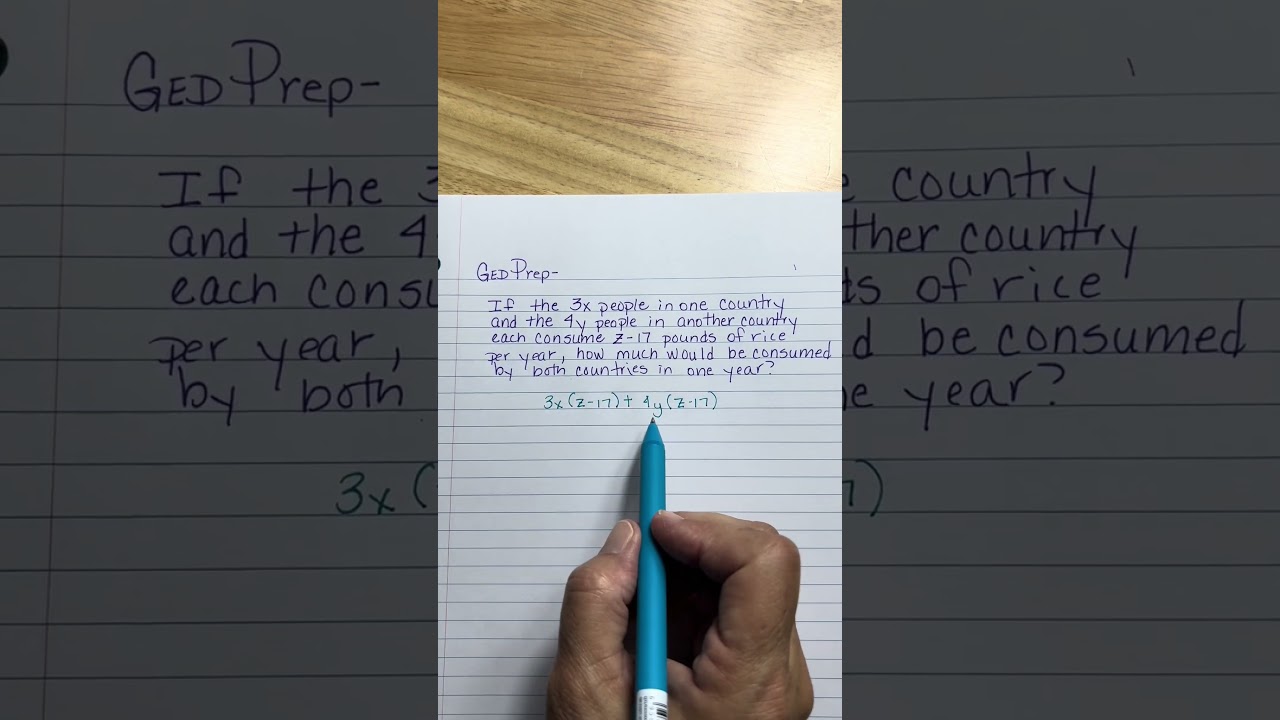 GED Prep-
If the 3x people in one country
and the 4y people in another country
each consume z-17 pounds of rice
per year, how much would be consumed
by both countries in one year?
3x(z-17) + 4y(z-17)